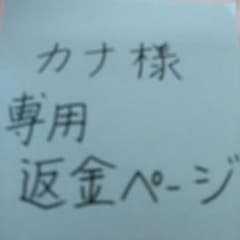 カナ様
専用
返金ページ